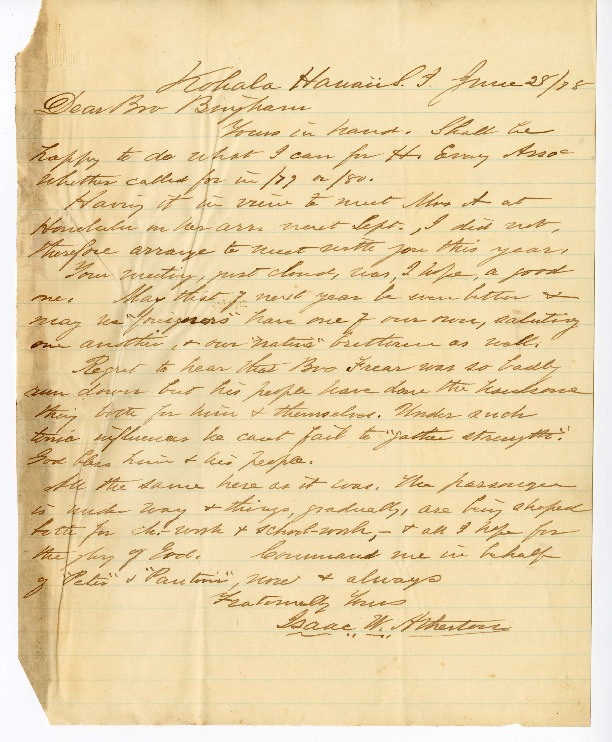 Kohala Hawaii S. I. June 28/78
Dear Bro Bingham
Yours in hand. Shall be
happy to do what I can for H. Evang Assoc
whether called for in /79 or /80.
Having it in view to meet Mrs A at
Honolulu on her arr. next Sept., I did not,
therefore arrange to meet with you this year.
Your meeting, just closed, was, I hope, a good
one. May that of next year be even better &
may us "foreigners" have one of our own, saluting
one another, & our "native" brethren as well.
Regret to hear that Bro Frear was so badly
run down but his people have done the handsome
thing both for him & themselves. Under such
tonic influences he can't fail to "gather strength."
God bless him & his people.
All the same here as it was. The parsonage
is under way & things, gradually, are being shaped
both for ch-work & school-work, - & all I hope for
the glory of God. Command me in behalf
of "Peter" & now & always
Fraternally Yours
Isaac W. Atherton